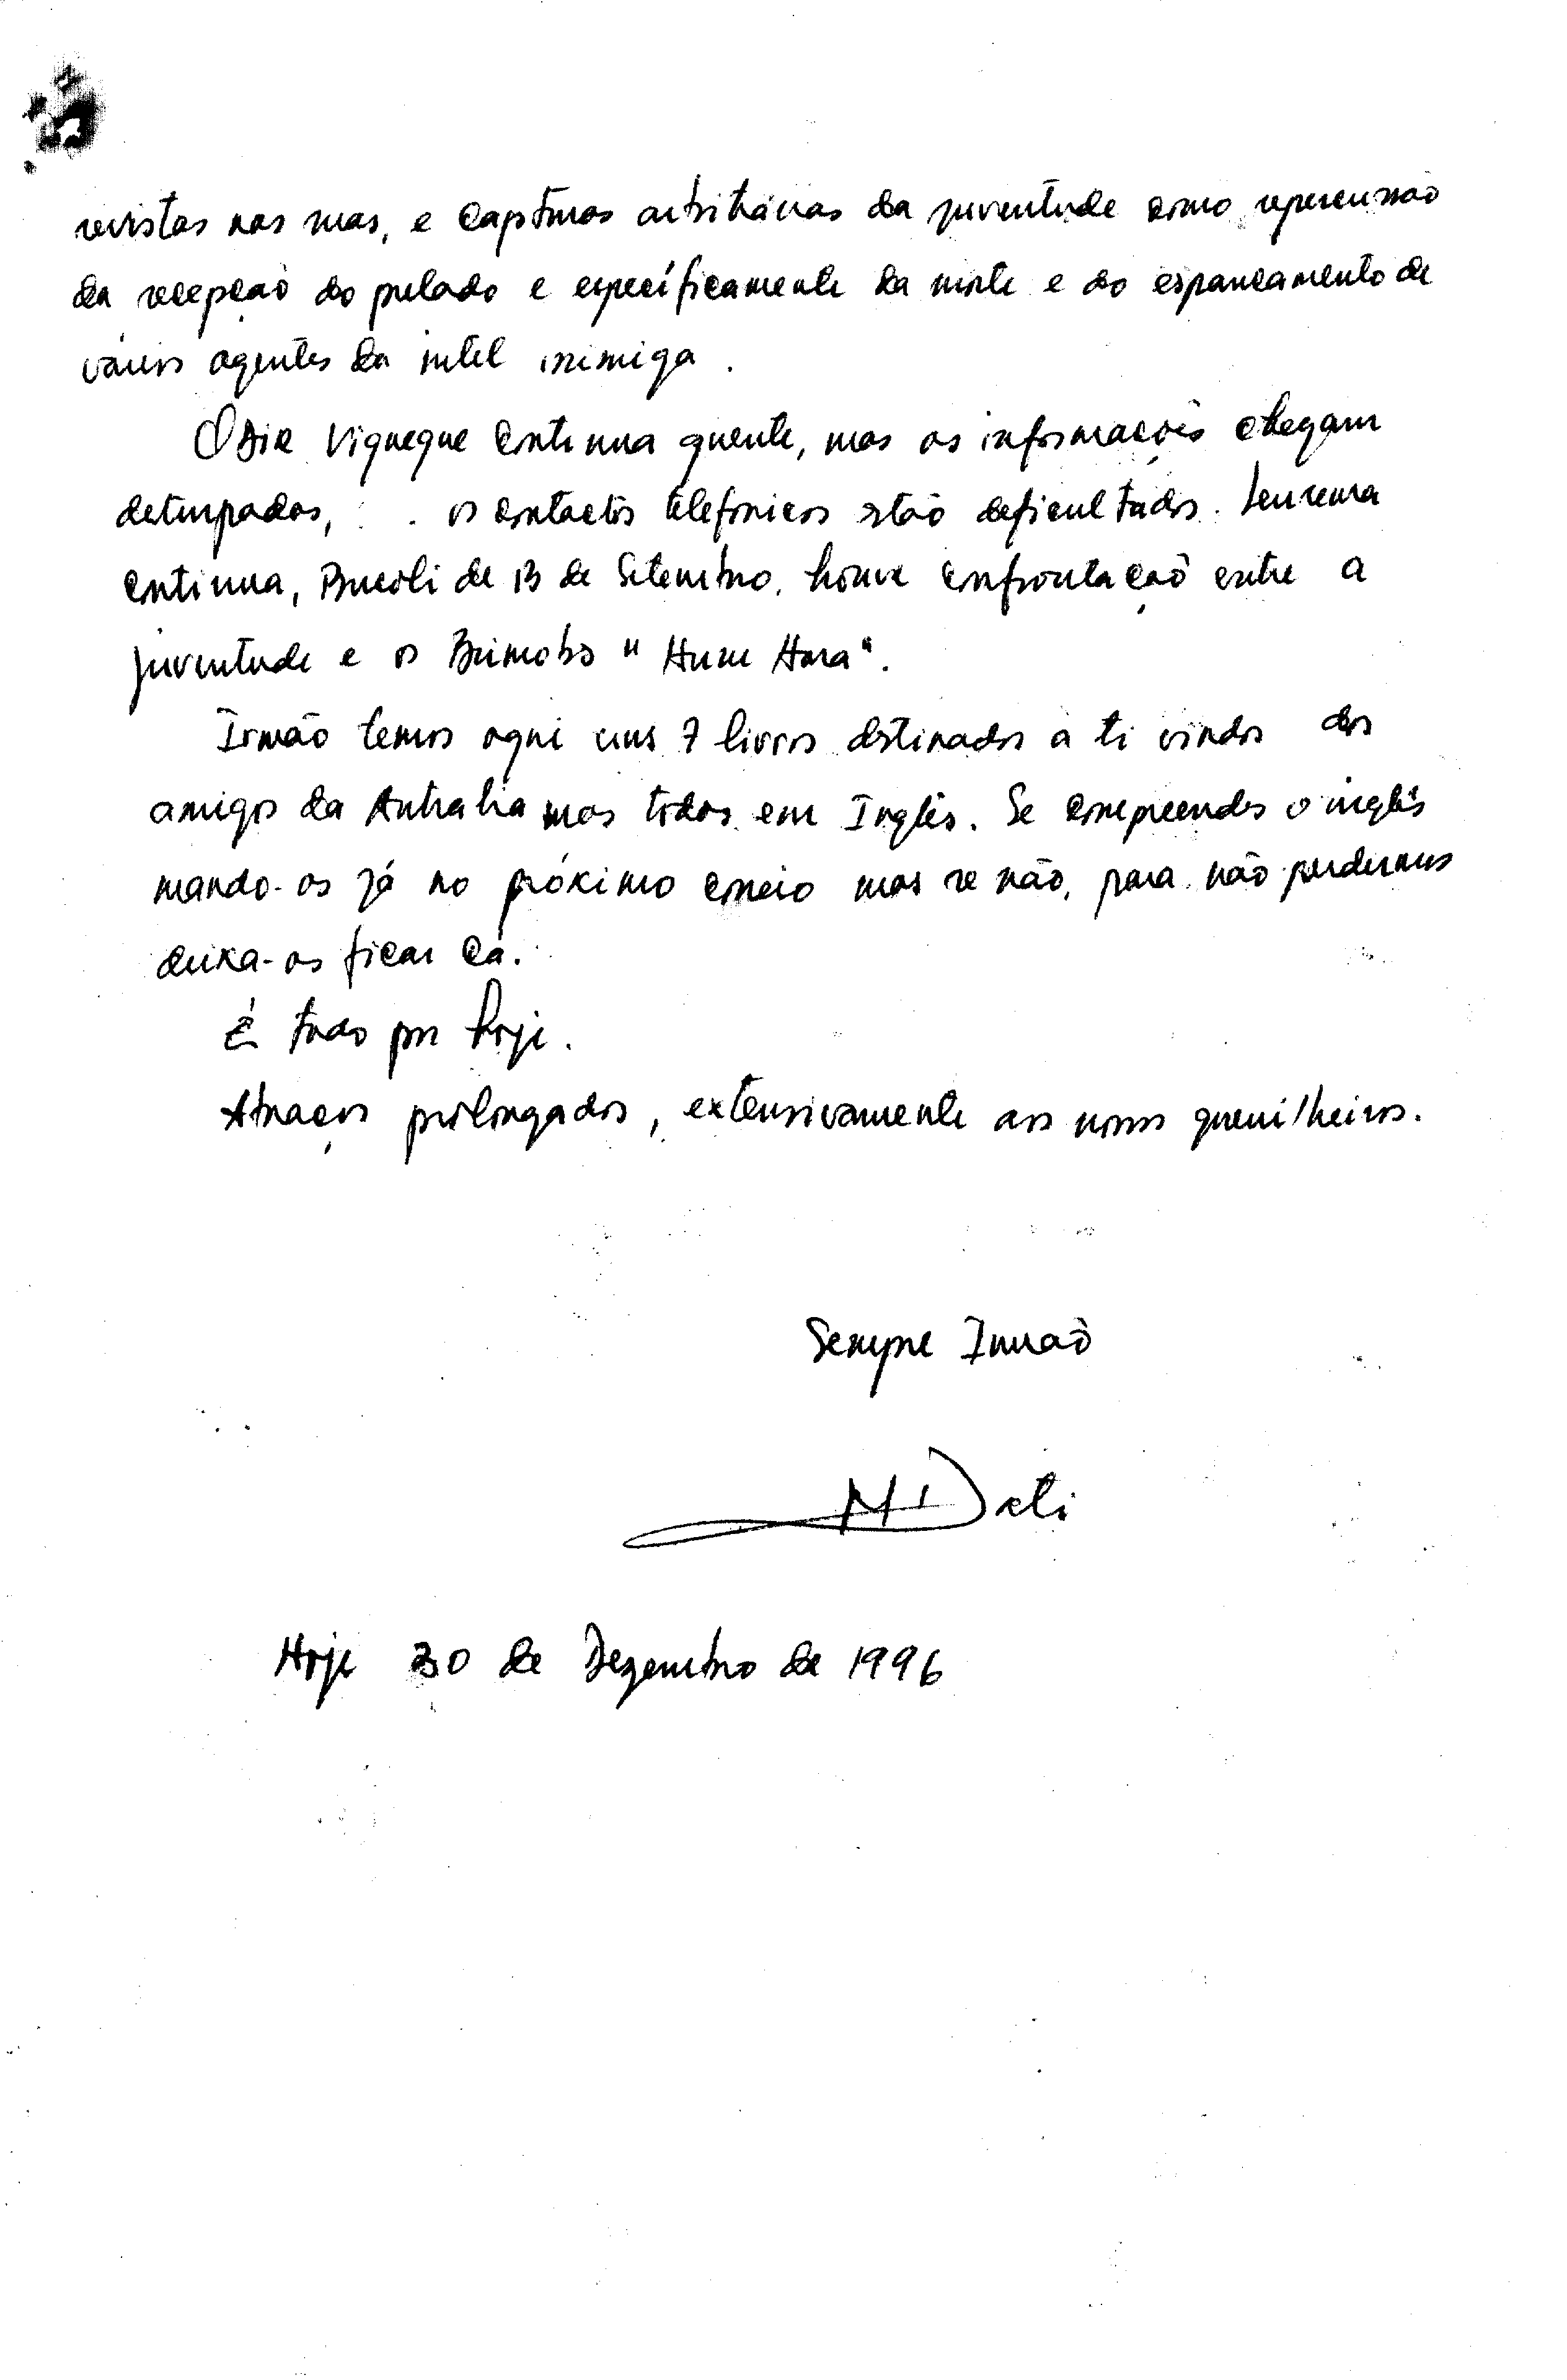 revistas nas ruas, e capturas arbitrárias da juventude como repercussão
da recepção do prelado e específicamente da morte e do espancamento de
vários agentes da intel inimiga.
Ossú Viqueque continua quente, mas as informações chegam
deturpadas, os contactos telefónicos estão deficultados.
continua, Bucoli de 13 de Setembro. houve confrontação entre a
juventude e os Brimobs "Huru Hara".
Irmão temos aqui uns 7 livros destinados a ti vindos dos
amigos da Autralia mas todos em Inglês. Se compreendes o inglês
mando-os já no próximo correio mas se não, para não perdermos
deixa-os ficar cá.
É tudo por hoje.
Abraços prolongados, extensivamente aos nossos guerrilheiros.
Sempre Irmão
Hoje 30 de Dezembro de 1996